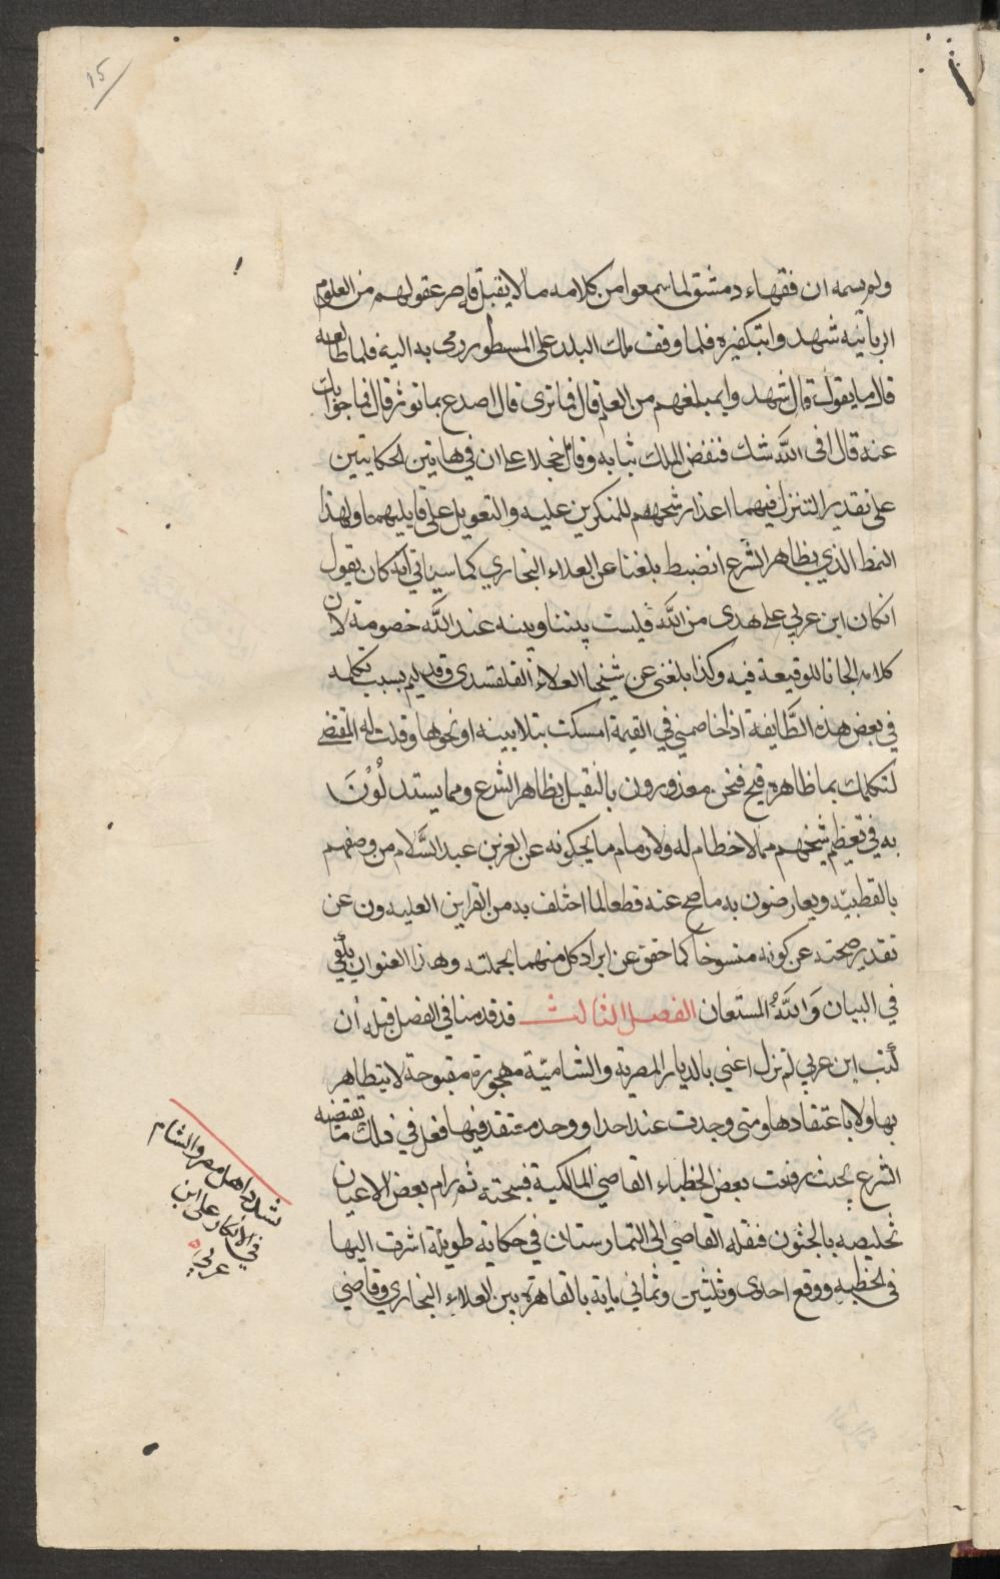 15
ولم يسمه ان فقهاء دمشق لما سمعوا من كلامه ما لا يقبل قاصر عقولهم من العلوم
الربانيه شهدوا بتكفيره فلما وقف ملك البلد على المسطور رمى به اليه فلما طالعه
قال ما يقول قال شهدوا بمبلغهم من العلم قال فما ترى قال اصدع بما تؤثر قال فما جوابك
عنه قال افى الله شك فنفض الملك ثيابه وقام خجلا على ان في هاتين الحكايتين
على تقدير التنزل فيهما اعذار شيخهم للمنكرين عليه والتعويل على قايليهما ولهذا
النمط الذي بظاهر الشرع انضبط بلغنا عن العلاء البخاري كما سياتي انه كان يقول
انكان ابن عربي على هدى من الله فليست بيننا وبينه عند الله خصومة لان
كلامه الجانا للوقيعة فيه وكذا بلغني عن شيخنا العلاء القلقشندى وقد ليم بسبب تكلمه
في بعض هذه الطايفة اذا خاصمني في القيمة امسكت بتلابيبه او نحوها وقلت له المقتضى
لتكلمك بما ظاهره قبح فنحن معذورون بالتقييد بظاهر الشرع ومما يستدلون
به في تعظيم شيخهم مما لا خطام له ولا زمام ما يحكونه عن العز بن عبد السلام من وصفهم
بالقطبية ويعارضون به ما صح عنه قطعا لما احتف به من القراين العليه دون عن
تقدير صحته عن كونه منسوخا كما حقق عن ايراد كل منهما بجملته وهاذا العنوان يلقي
في البيان والله المستعان الفصل الثالث قد قدمنا في الفصل قبله ان
كتب ابن عربي لم تزل اعني بالديار المصرية والشاميّة مهجورة مقبوحة لا يتظاهر
بها ولا باعتقادها ومتى وجدت عند احد او وجد معتقد فيها فعل في ذلك ما يقتضيه
الشرع بحيث رفعت بعض الخطباء القاضي المالكية فسجنه ثم رام بعض الاعيان
تخليصه بالجنون فنقله القاضي الى التمارستان في حكاية طويلة اشرت اليها
في الخطبه ووقع احدى وثلثين وثماني ماية بالقاهرة بين العلاء البخاري وقاضي
تشديد اهل مصر والشام
في الانكار على ابن
عربي